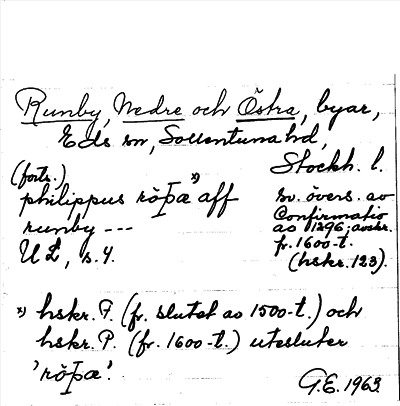 Runby, Nedre och Östra, byar,
Eds sn, Sollentuna hd,
Stockh. l.
(forts.)
philippus röþæ x) aff
runby ---
UL, s. 4.
sv. övers. av
Confirmatio
ao 1296; avskr.
fr. 1600-t.
(hskr. 123).
x) hskr. F. (fr. slutet av 1500-t.) och
hskr. P. (fr. 1600-t.) utesluter
'röþæ'.
G.E. 1963.